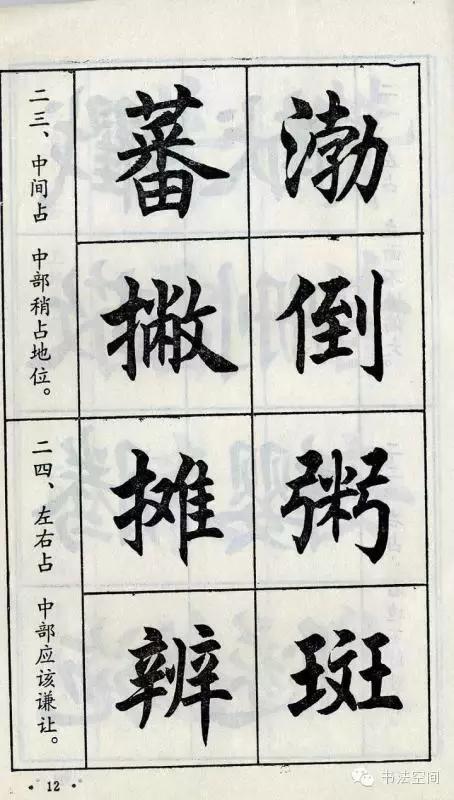 二三、中间占
中部稍占地位。
蕃 渤
撇 倒
二四、左右占
中部应该谦让。
摊 粥
辨 斑
· 12 ·
书法空间